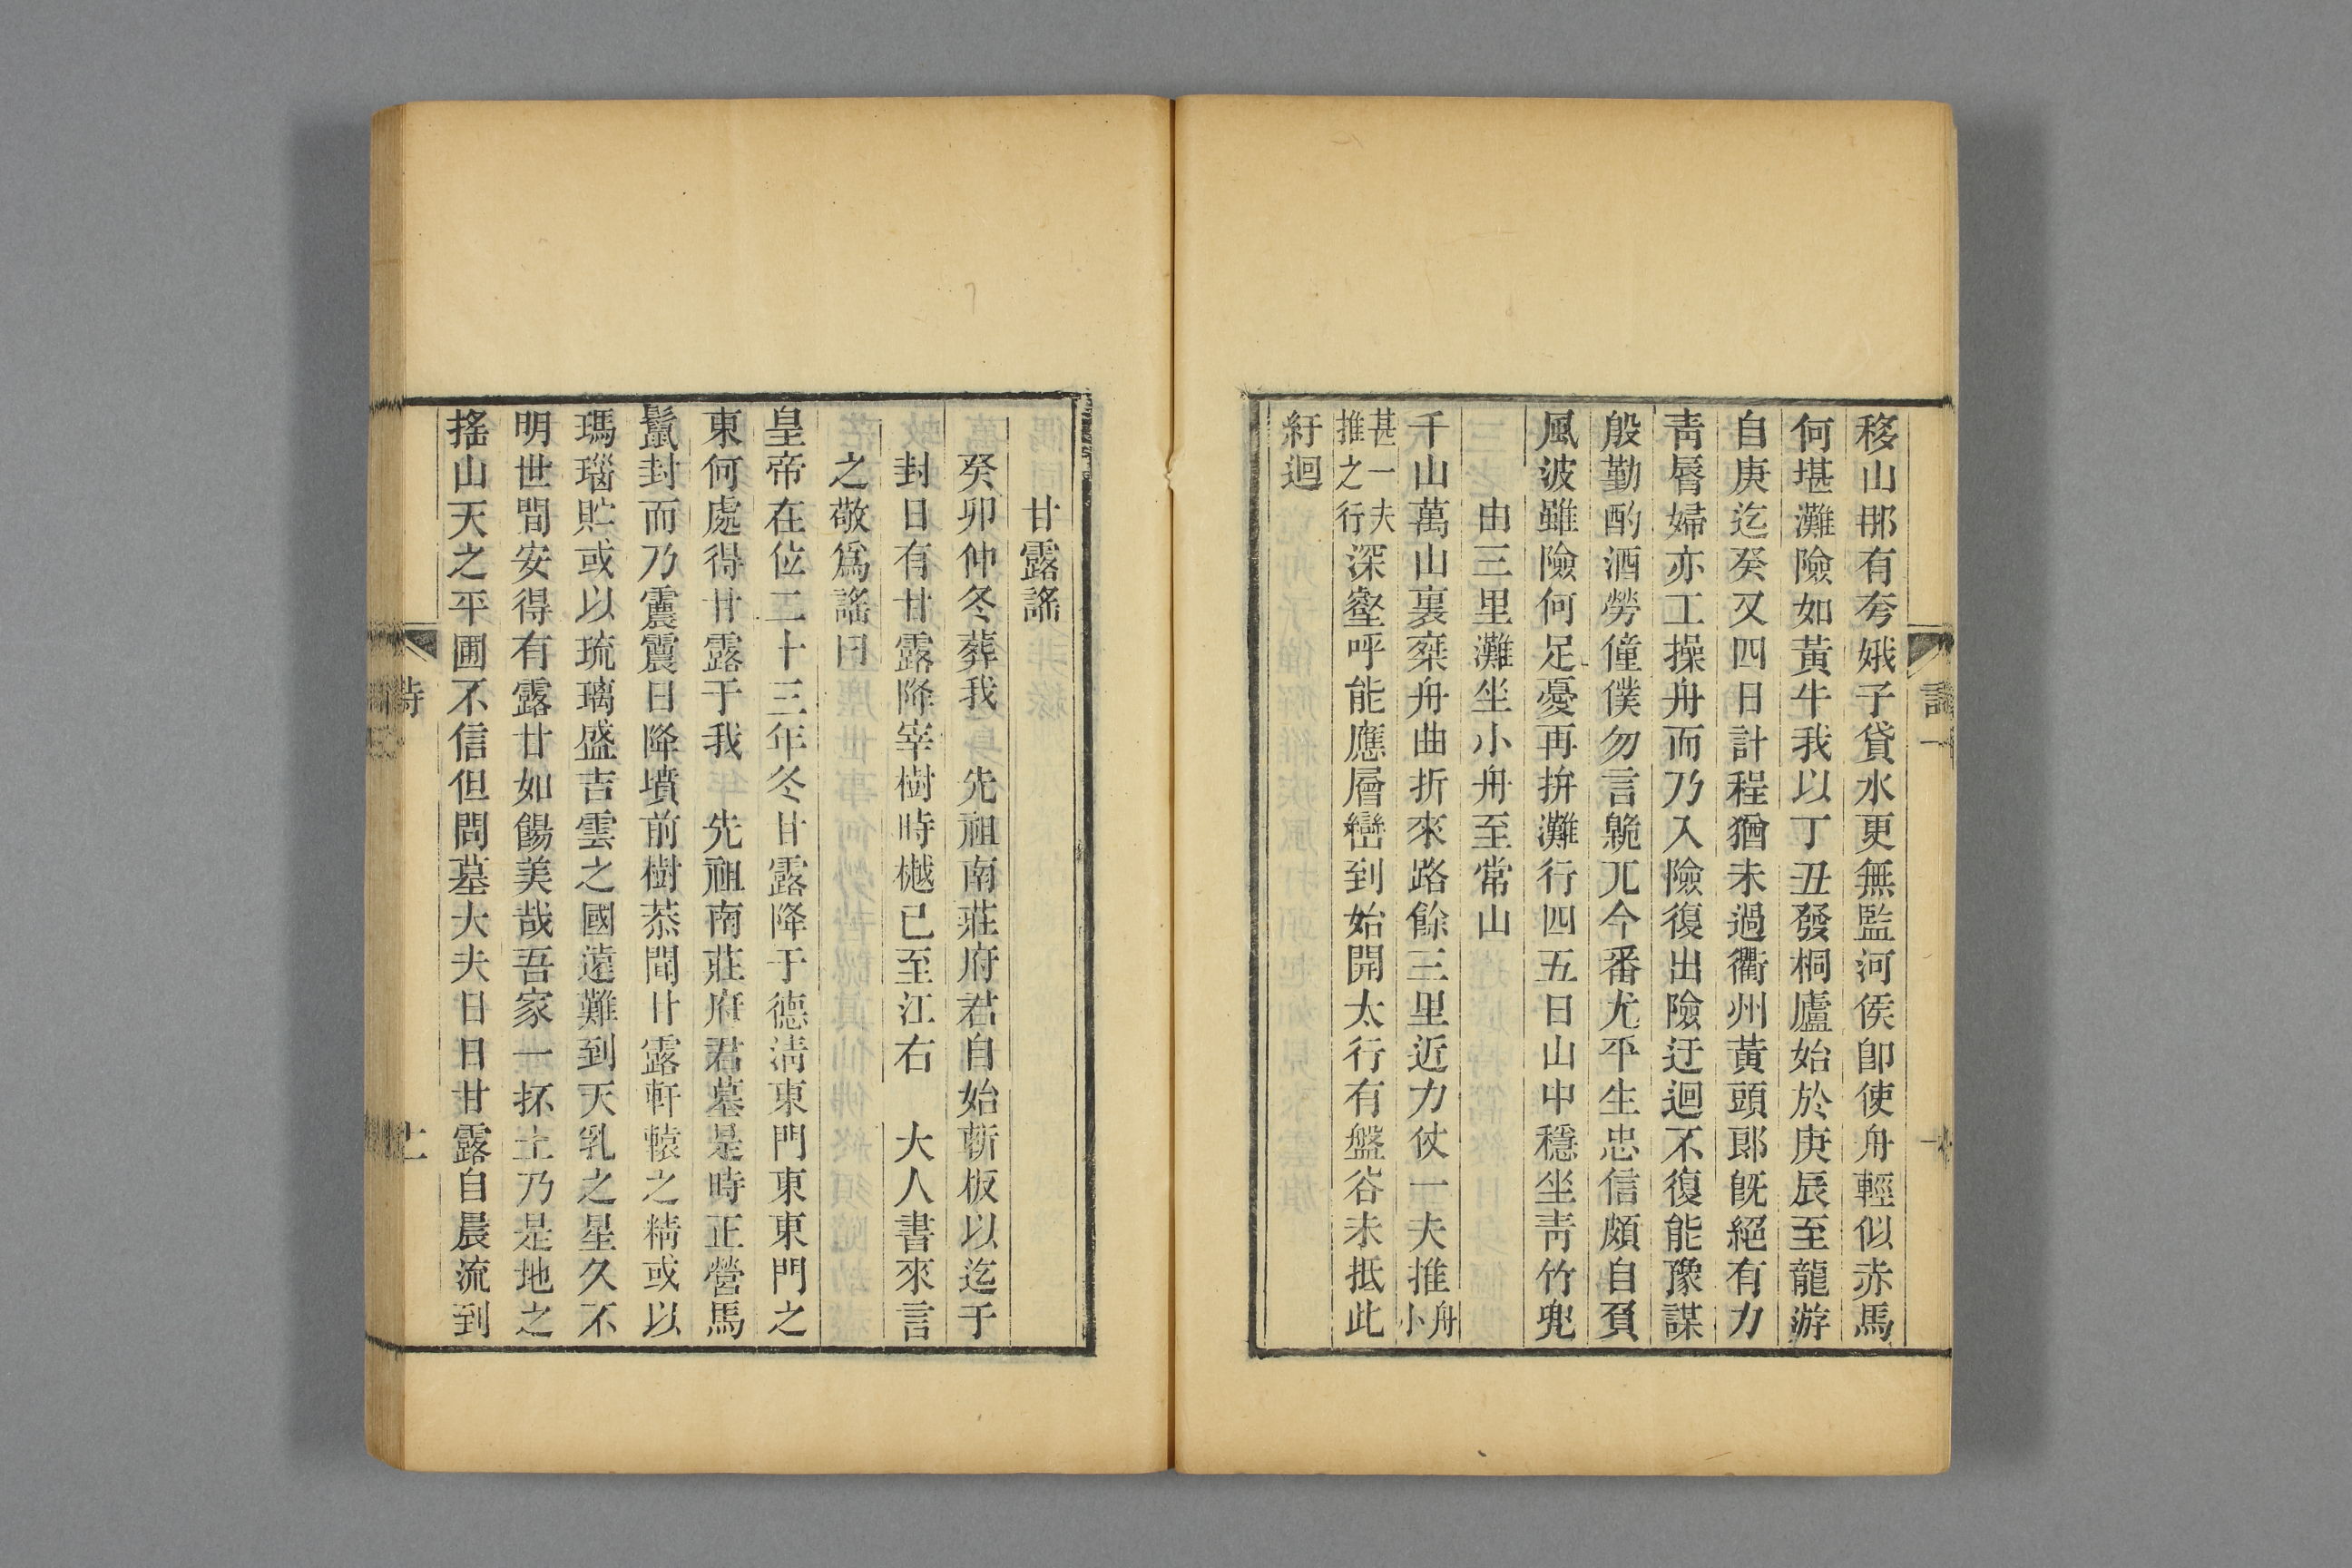 移山那有夸娥子貸水更無監河侯卽使舟輕似赤馬
何堪灘險如黃牛我以丁丑發桐廬始於庚辰至龍游
自庚迄癸又四日計程猶未過衢州黃頭郞旣絕有力
靑脣婦亦工操舟而乃入險復出險迂迴不復能豫謀
殷勤酌酒勞僮僕勿言臲兀今番尤平生忠信頗自負
風波雖險何足憂再拚灘行四五日山中穩坐靑竹兜
由三里灘坐小舟至常山
千山萬山裏桀舟曲折來路餘三里近力仗一夫推舟小
甚一夫推之行深壑呼能應層巒到始開太行有盤谷未抵此
紆迴
詩一
甘露謠
癸卯仲冬葬我　先祖南莊府君自始斬板以迄于
封日有甘露降宰樹時樾已至江右　大人書來言
之敬爲謠曰
皇帝在位二十三年冬甘露降于德淸東門東東門之
東何處得甘露于我　先祖南莊府君墓是時正營馬
鬣封而乃震震日降墳前樹恭聞甘露軒轅之精或以
瑪瑙貯或以琉璃盛吉雲之國遠難到天乳之星久不
明世間安得有露甘如餳美哉吾家一抔土乃是地之
搖山天之平圃不信但問墓大夫日日甘露自晨流到
詩